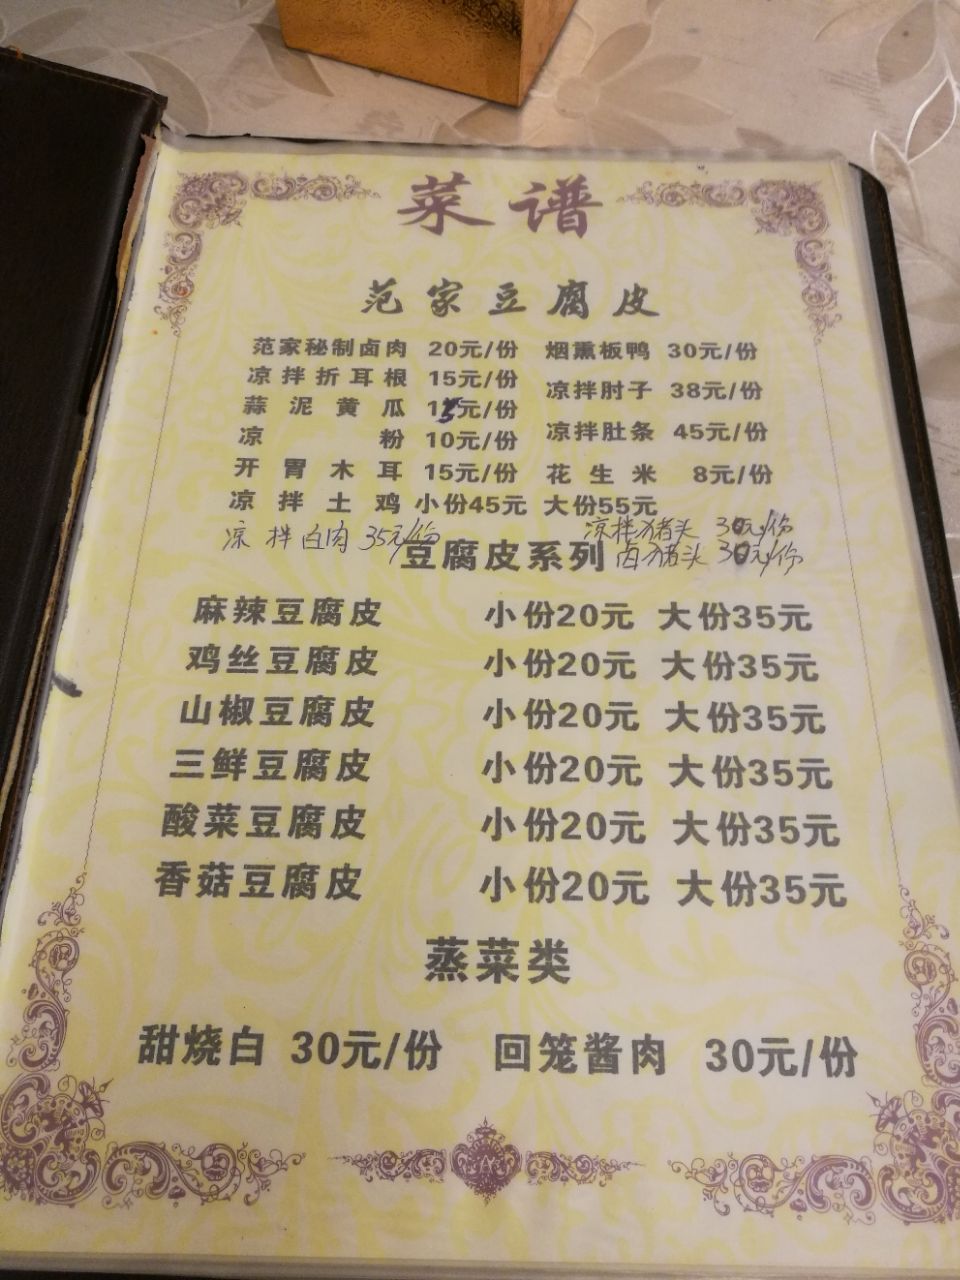 菜谱
范家豆腐皮
范家秘制卤肉 20元/份 烟熏板鸭 30元/份
凉拌折耳根 15元/份 凉拌肘子 38元/份
蒜泥黄瓜 15元/份
凉粉 10元/份 凉拌肚条 45元/份
开胃木耳 15元/份 花生米 8元/份
凉拌土鸡 小份45元 大份55元
凉拌白肉 35元/份 凉拌猪头 30元/份
卤猪头 30元/份
豆腐皮系列
麻辣豆腐皮 小份20元 大份35元
鸡丝豆腐皮 小份20元 大份35元
山椒豆腐皮 小份20元 大份35元
三鲜豆腐皮 小份20元 大份35元
酸菜豆腐皮 小份20元 大份35元
香菇豆腐皮 小份20元 大份35元
蒸菜类
甜烧白 30元/份 回笼酱肉 30元/份